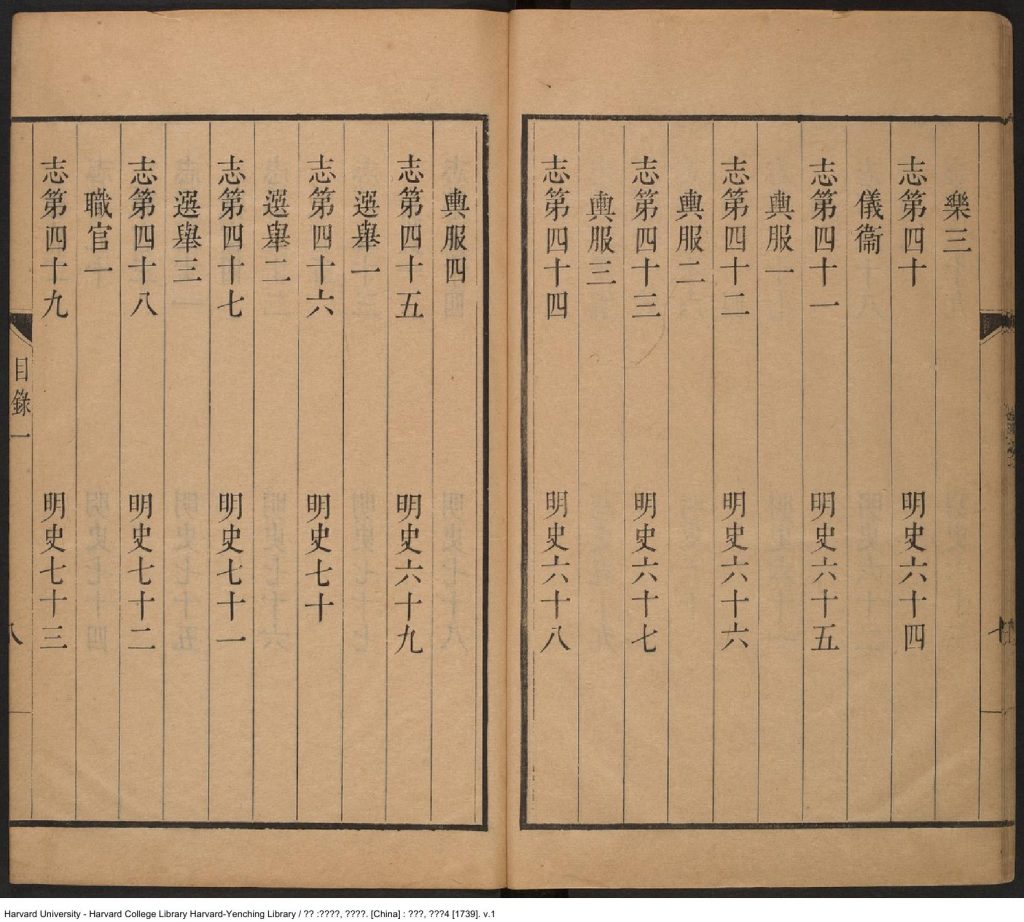 樂三
志第四十 明史六十四
儀衞
志第四十一 明史六十五
輿服一
志第四十二 明史六十六
輿服二
志第四十三 明史六十七
輿服三
志第四十四 明史六十八
輿服四
志第四十五 明史六十九
選舉一
志第四十六 明史七十
選舉二
志第四十七 明史七十一
選舉三
志第四十八 明史七十二
職官一
志第四十九 明史七十三
目錄一
八
Harvard University - Harvard College Library Harvard-Yenching Library / ?? :????, ????. [China] : ???, ???4 [1739]. v.1